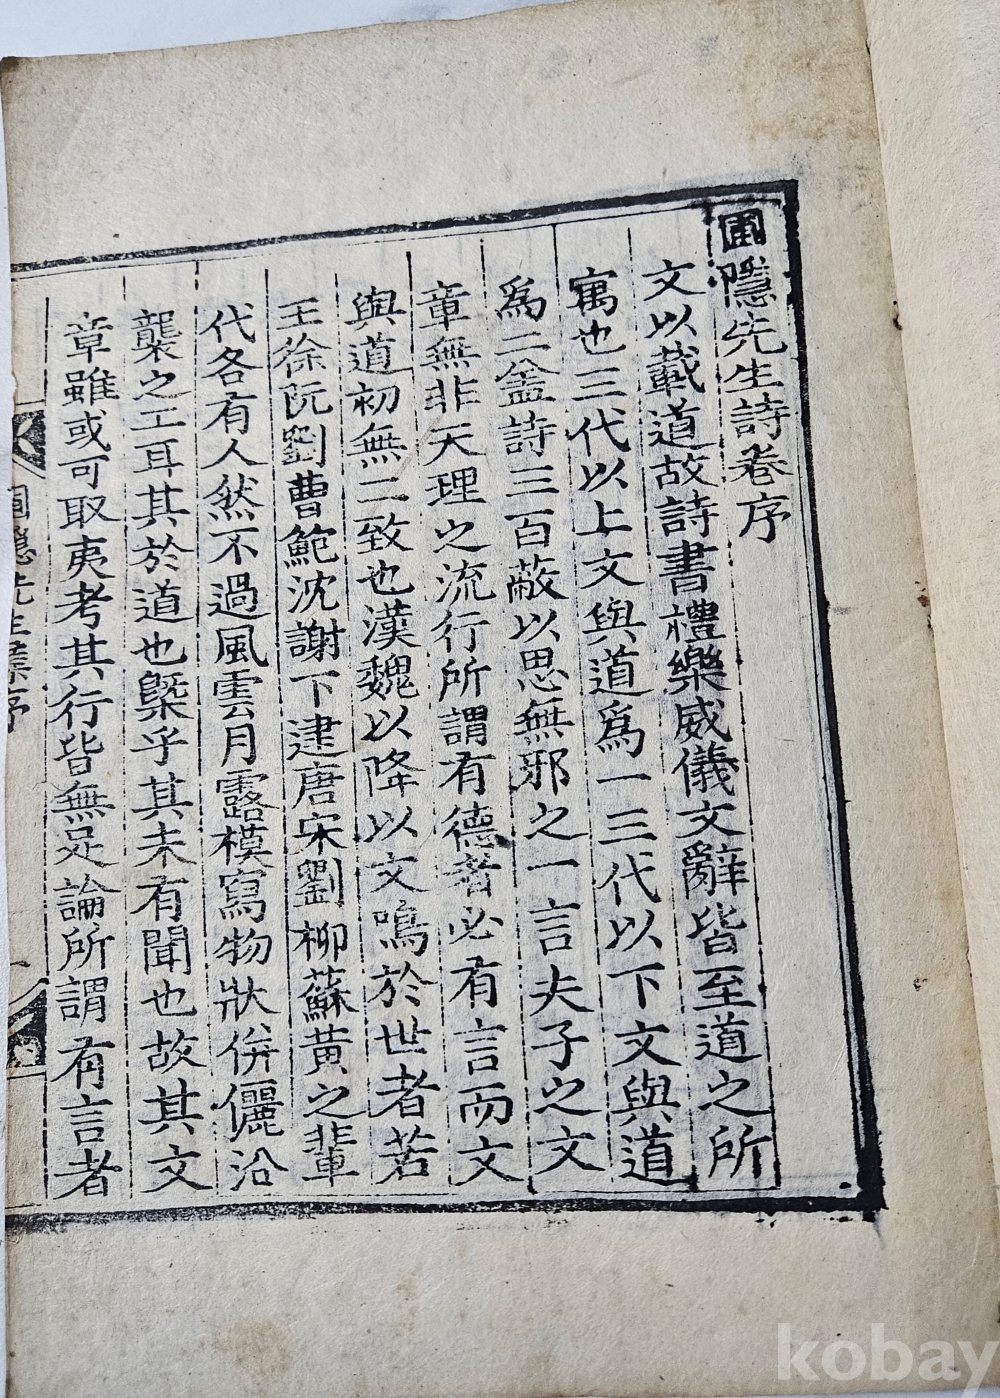 圃隱先生詩卷序
文以載道故詩書禮樂威儀文辭皆至道之所
寓也三代以上文與道爲一三代以下文與道
爲二盖詩三百蔽以思無邪之一言夫子之文
章無非天理之流行所謂有德者必有言而文
與道初無二致也漢魏以降以文鳴於世者若
王徐阮劉曹鮑沈謝下逮唐宋劉柳蘇黃之輩
代各有人然不過風雲月露模寫物狀併儷沿
襲之工耳其於道也槩乎其未有聞也故其文
章雖或可取夷考其行皆無足論所謂有言者
圃隱先生集序
kobay